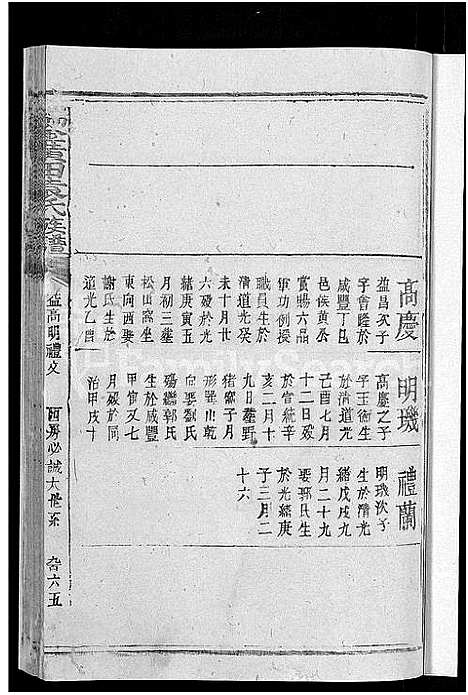 高慶
益昌次子
字會隆於
咸豐丁巳
邑侯黃公
賞賜六品
軍功例授
職員生於
清道光癸
未十月廿
六歿於光
緒庚寅五
月初三塟
松山窩坐
東向西娶
謝氏生於
道光乙酉
明璣
高慶之子
字玉衡生
於清道光
己酉七月
十二日歿
於宣統辛
亥二月十
九日塟野
猪窩子月
形巽山乾
向娶劉氏
殤繼郭氏
生於咸豐
甲寅又七
月歿於同
治甲戌十
禮蘭
明璣次子
生於清光
緒戊戌九
月二十九
娶郭氏生
於光緒庚
子三月二
十六
田袁氏族譜
益高明禮文
必誠大倫系
六五